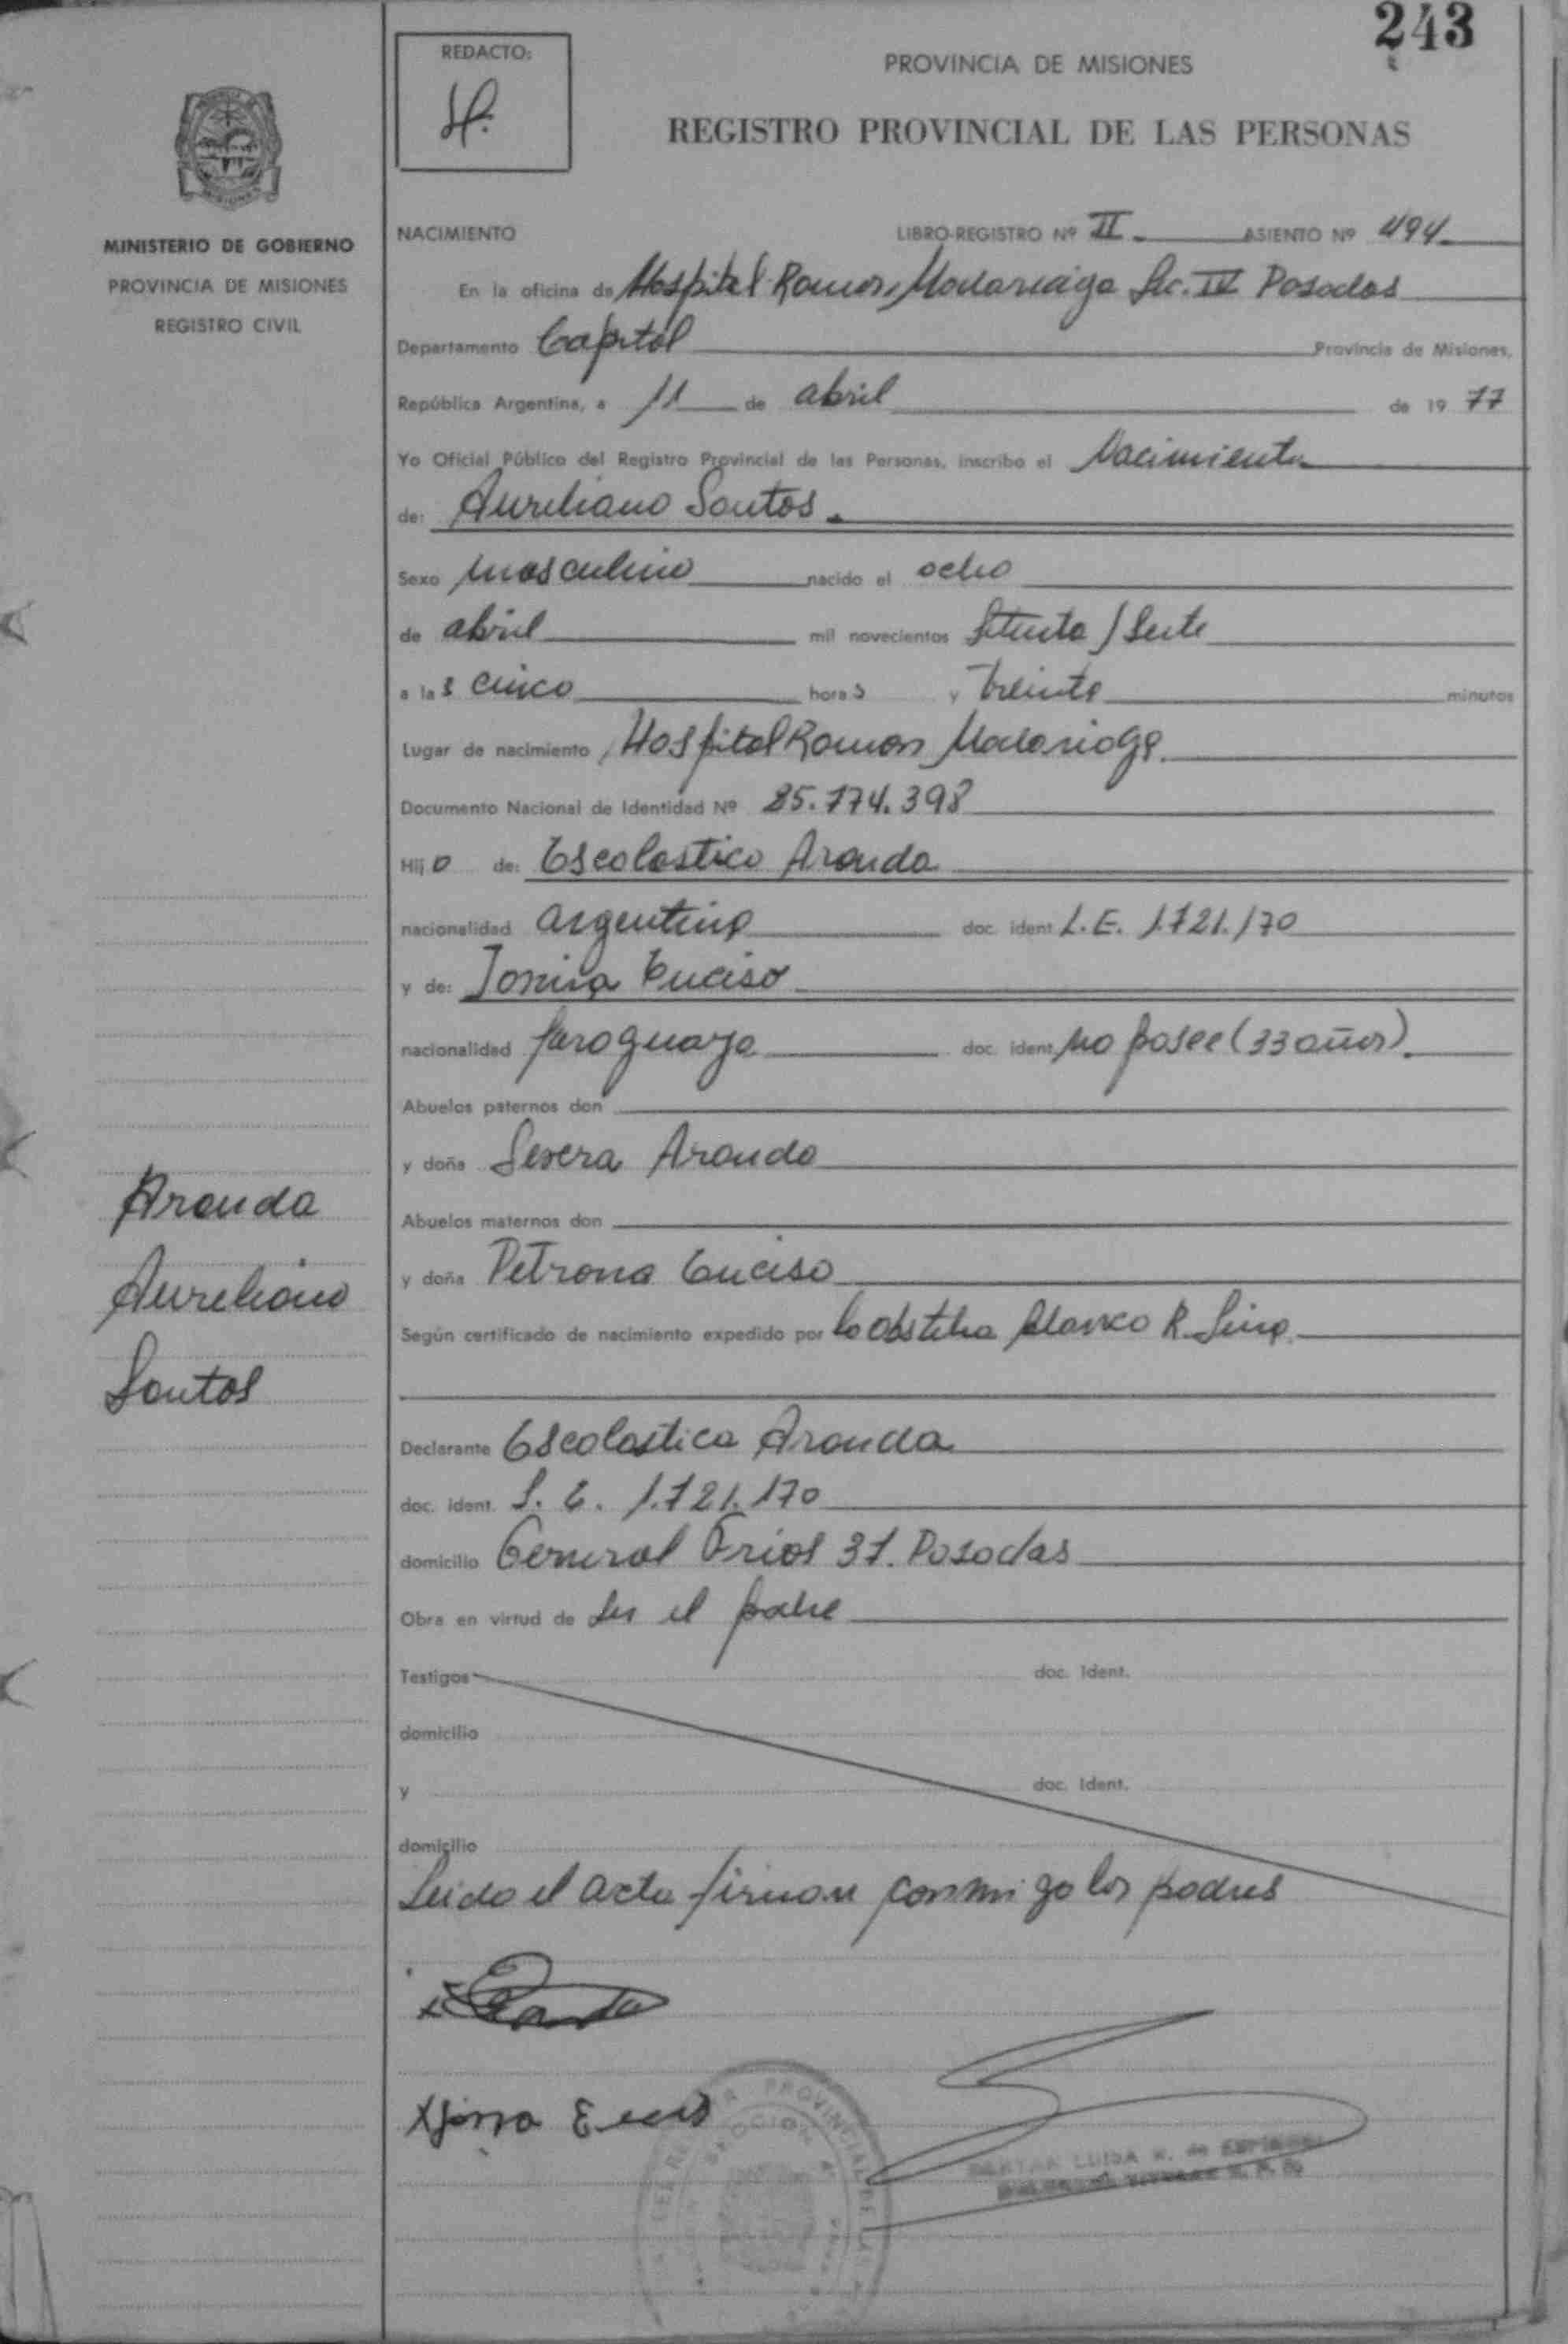 243
REDACTO:
PROVINCIA DE MISIONES
REGISTRO PROVINCIAL DE LAS PERSONAS
MINISTERIO DE GOBIERNO
PROVINCIA DE MISIONES
REGISTRO CIVIL
NACIMIENTO LIBRO-REGISTRO Nº II ASIENTO Nº 494
En la oficina de Hospital Ramon Madariaga Sec. IV Posadas
Departamento Capital Provincia de Misiones,
República Argentina, a 11 de abril de 1977
Yo Oficial Público del Registro Provincial de las Personas, inscribo el Nacimiento
de: Aureliano Santos.
Sexo masculino nacido el ocho
de abril mil novecientos setenta y siete
a las cinco horas y treinta minutos
Lugar de nacimiento Hospital Ramon Madariaga.
Documento Nacional de Identidad Nº 25.774.398
Hijo de: Escolastico Aranda
nacionalidad argentina doc. ident. L.E. 1.721.170
y de: Enciso
nacionalidad paraguaya doc. ident. no posee (33 años).
Abuelos paternos don
y doña Severa Aranda
Abuelos maternos don
y doña Petrona Enciso
Según certificado de nacimiento expedido por la obstetra Blanca R.
Aranda
Aureliano
Santos
Declarante Escolastica Aranda
doc. ident. L.E. 1.721.170
domicilio General Frias 37. Posadas
Obra en virtud de ser el padre
Testigos doc. Ident.
domicilio
y doc. Ident.
domicilio
Leido el acta firman conmigo los padres